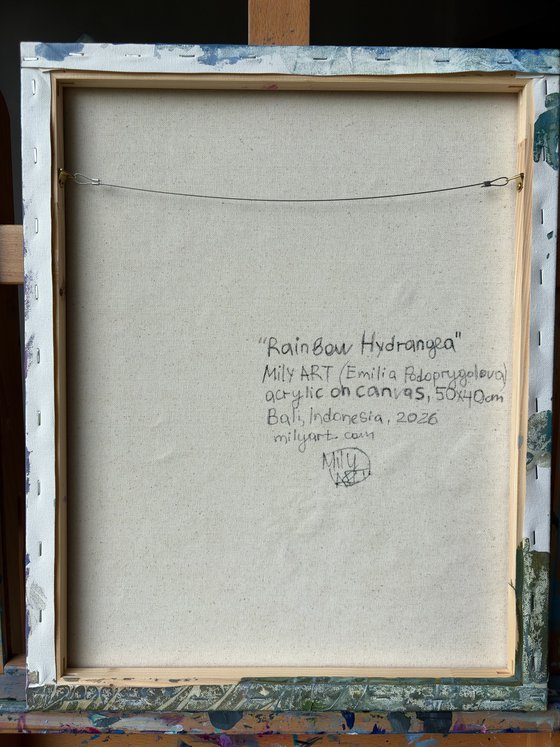 "RainBow Hydrangea"
Mily ART (Emilia Podoprygolova)
acrylic on canvas, 50x40cm
Bali, Indonesia, 2026
milyart.com
Mily
ART